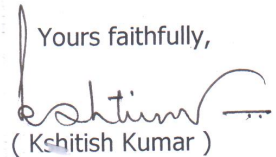 Yours faithfully,
( Kshitish Kumar )